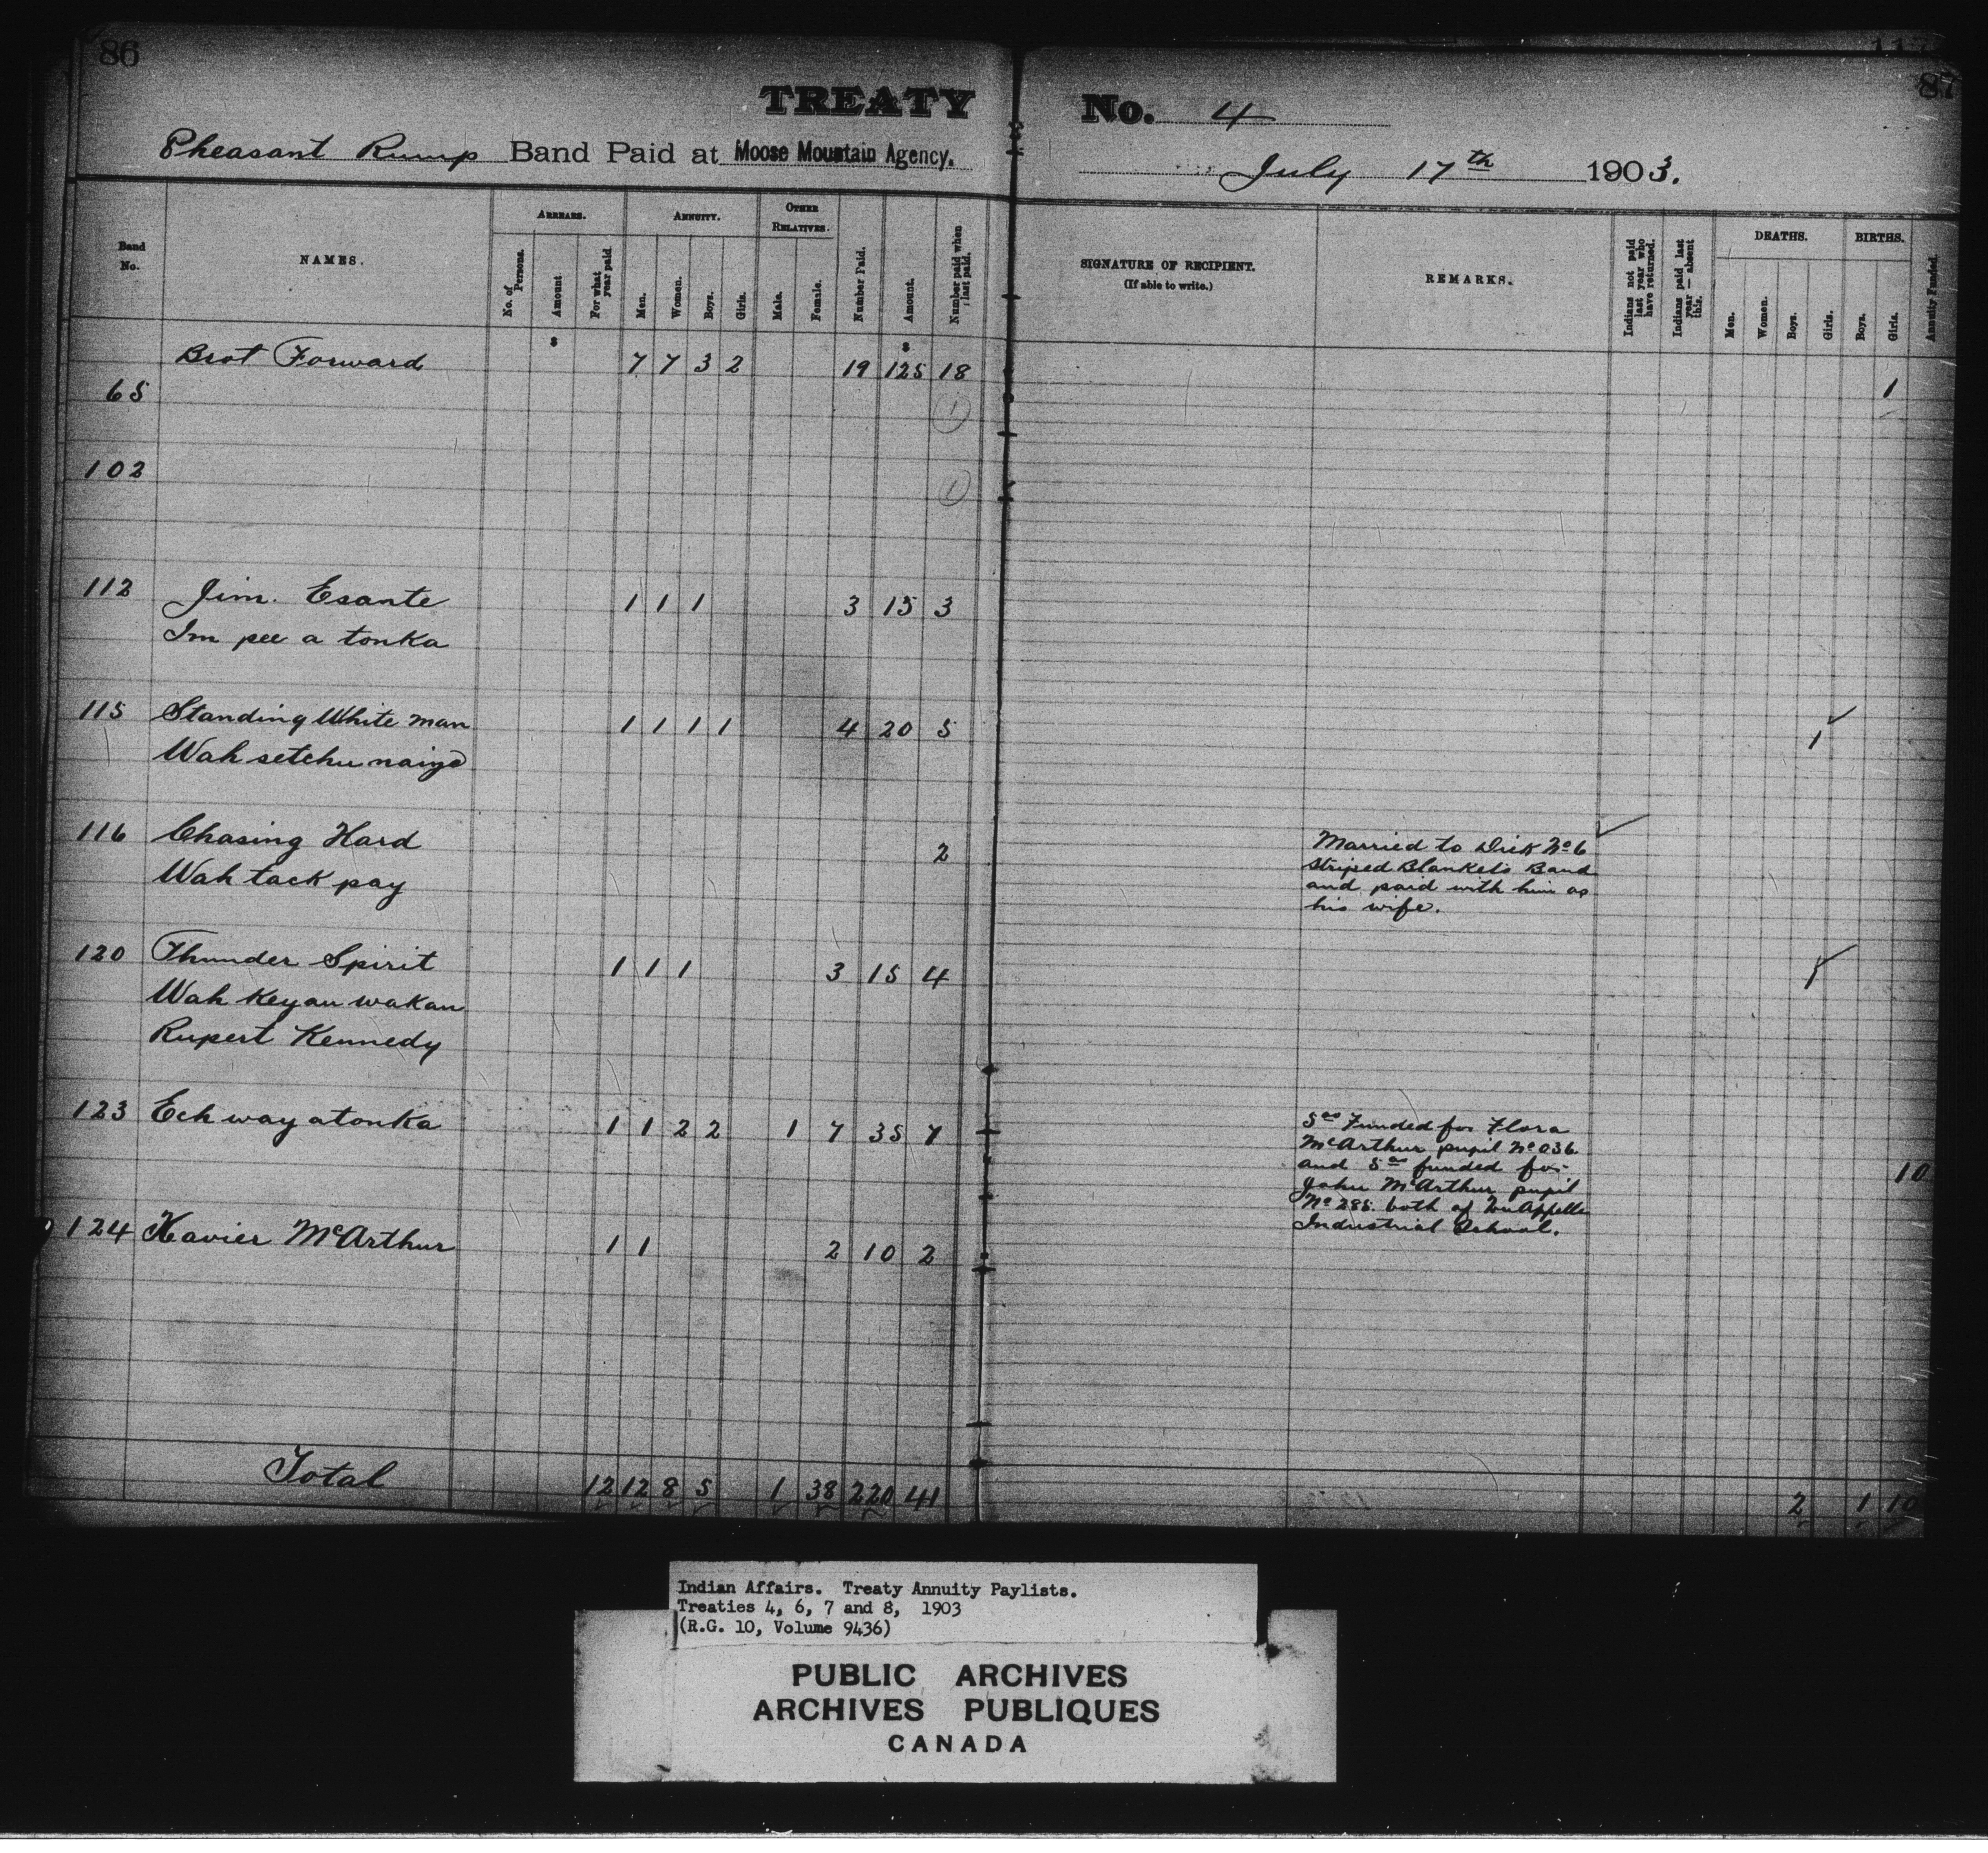 86
87
TREATY No. 4
Pheasant Rump Band Paid at Moose Mountain Agency. July 17th 1903.
Band No.
NAMES.
ARREARS.
No. of Persons.
Amount
For what year paid.
ANNUITY.
Men.
Women.
Boys.
Girls.
OTHER RELATIVES.
Male.
Female.
Number Paid.
Amount.
Number paid when last paid.
SIGNATURE OF RECIPIENT.
(If able to write.)
REMARKS.
Indians not paid last year who have returned.
Indians paid last year — absent this.
DEATHS.
Men.
Women.
Boys.
Girls.
BIRTHS.
Boys.
Girls.
Annuity Funded.
$ $
Brot Forward 7 7 3 2 19 125 18 1
65 1
102 1
112 Jim. Esante 1 1 1 3 15 3
Im pee a tonka
115 Standing White man 1 1 1 1 4 20 5 1
Wah setchu naiyo
116 Chasing Hard 2
Wah tack pay
Married to Dick No 6
Striped Blankets Band
and paid with him as
his wife.
120 Thunder Spirit 1 1 1 3 15 4 1
Wah Keyau wakan
Rupert Kennedy
123 Ech way a tonka 1 1 2 2 1 7 35 7 10
5.00 Funded for Flora
McArthur pupil No 036.
and 5.00 funded for
John McArthur pupil
No 285. both of Qu'Appelle
Industrial School.
124 Xavier McArthur 1 1 2 10 2
Total 12 12 8 5 1 38 220 41 2 1 10
Indian Affairs. Treaty Annuity Paylists.
Treaties 4, 6, 7 and 8, 1903
(R.G. 10, Volume 9436)
PUBLIC ARCHIVES
ARCHIVES PUBLIQUES
CANADA